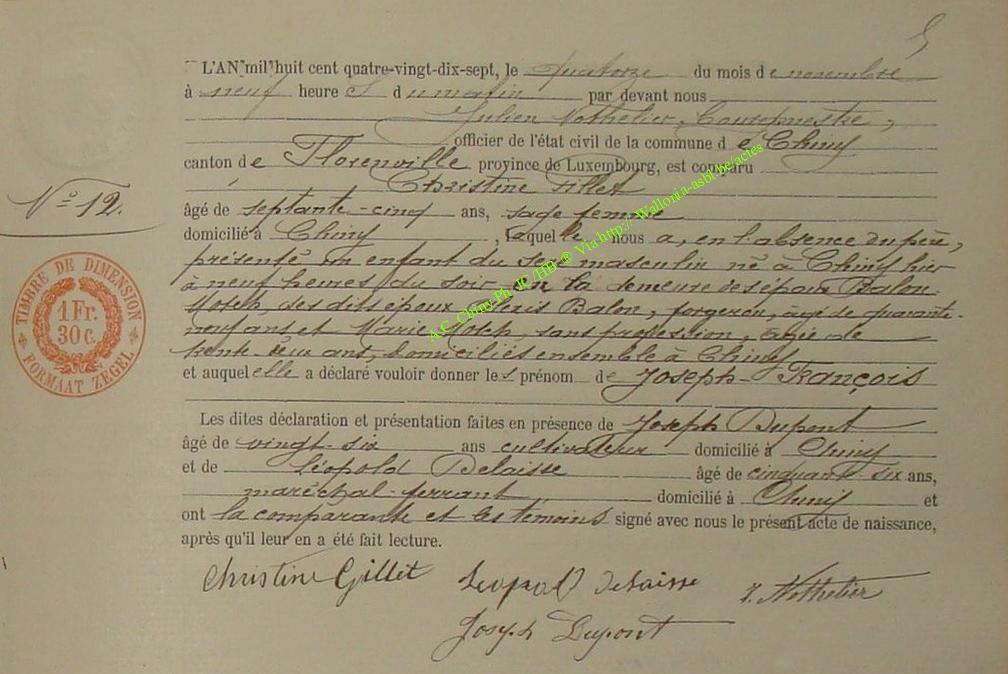 5
L'AN mil huit cent quatre-vingt-dix-sept, le Quatorze du mois de novembre
à neuf heures du matin par devant nous
Julien Nothelier, Bourgmestre,
officier de l'état civil de la commune de Chiny
canton de Florenville province de Luxembourg, est comparu
Christine Gillet
âgé de septante-cinq ans, sage femme
domicilié à Chiny, laquelle nous a, en l'absence du père,
présenté un enfant du sexe masculin né à Chiny hier
à neuf heures du soir en la demeure des époux Balon
Hotch, des dits époux Alexis Balon, forgeron, âgé de quarante-
neuf ans et Marie Hotch, sans profession, âgée de
trente-deux ans, domiciliés ensemble à Chiny
et auquel elle a déclaré vouloir donner les prénom de Joseph-François
Les dites déclaration et présentation faites en présence de Joseph Dupont
âgé de vingt-six ans cultivateur domicilié à Chiny
et de Léopold Delaisse âgé de cinquante-six ans,
maréchal-ferrant, domicilié à Chiny et
ont la comparante et les témoins signé avec nous le présent acte de naissance,
après qu'il leur en a été fait lecture.
Christine Gillet Leopold Delaisse J. Nothelier
Joseph Dupont
N° 12.
TIMBRE DE DIMENSION
1 Fr.
30 c.
FORMAAT ZEGEL
A.C. Chiny Ph JC /HB @ Via http:// Wallonia-asbl.be/actes